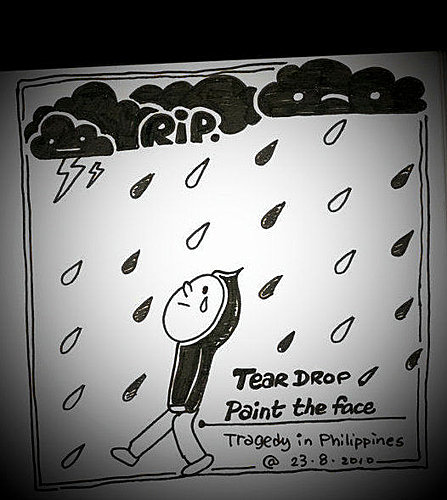 RIP.
TEAR DROP
Paint the face
Tragedy in Philippines
@ 23.8.2010